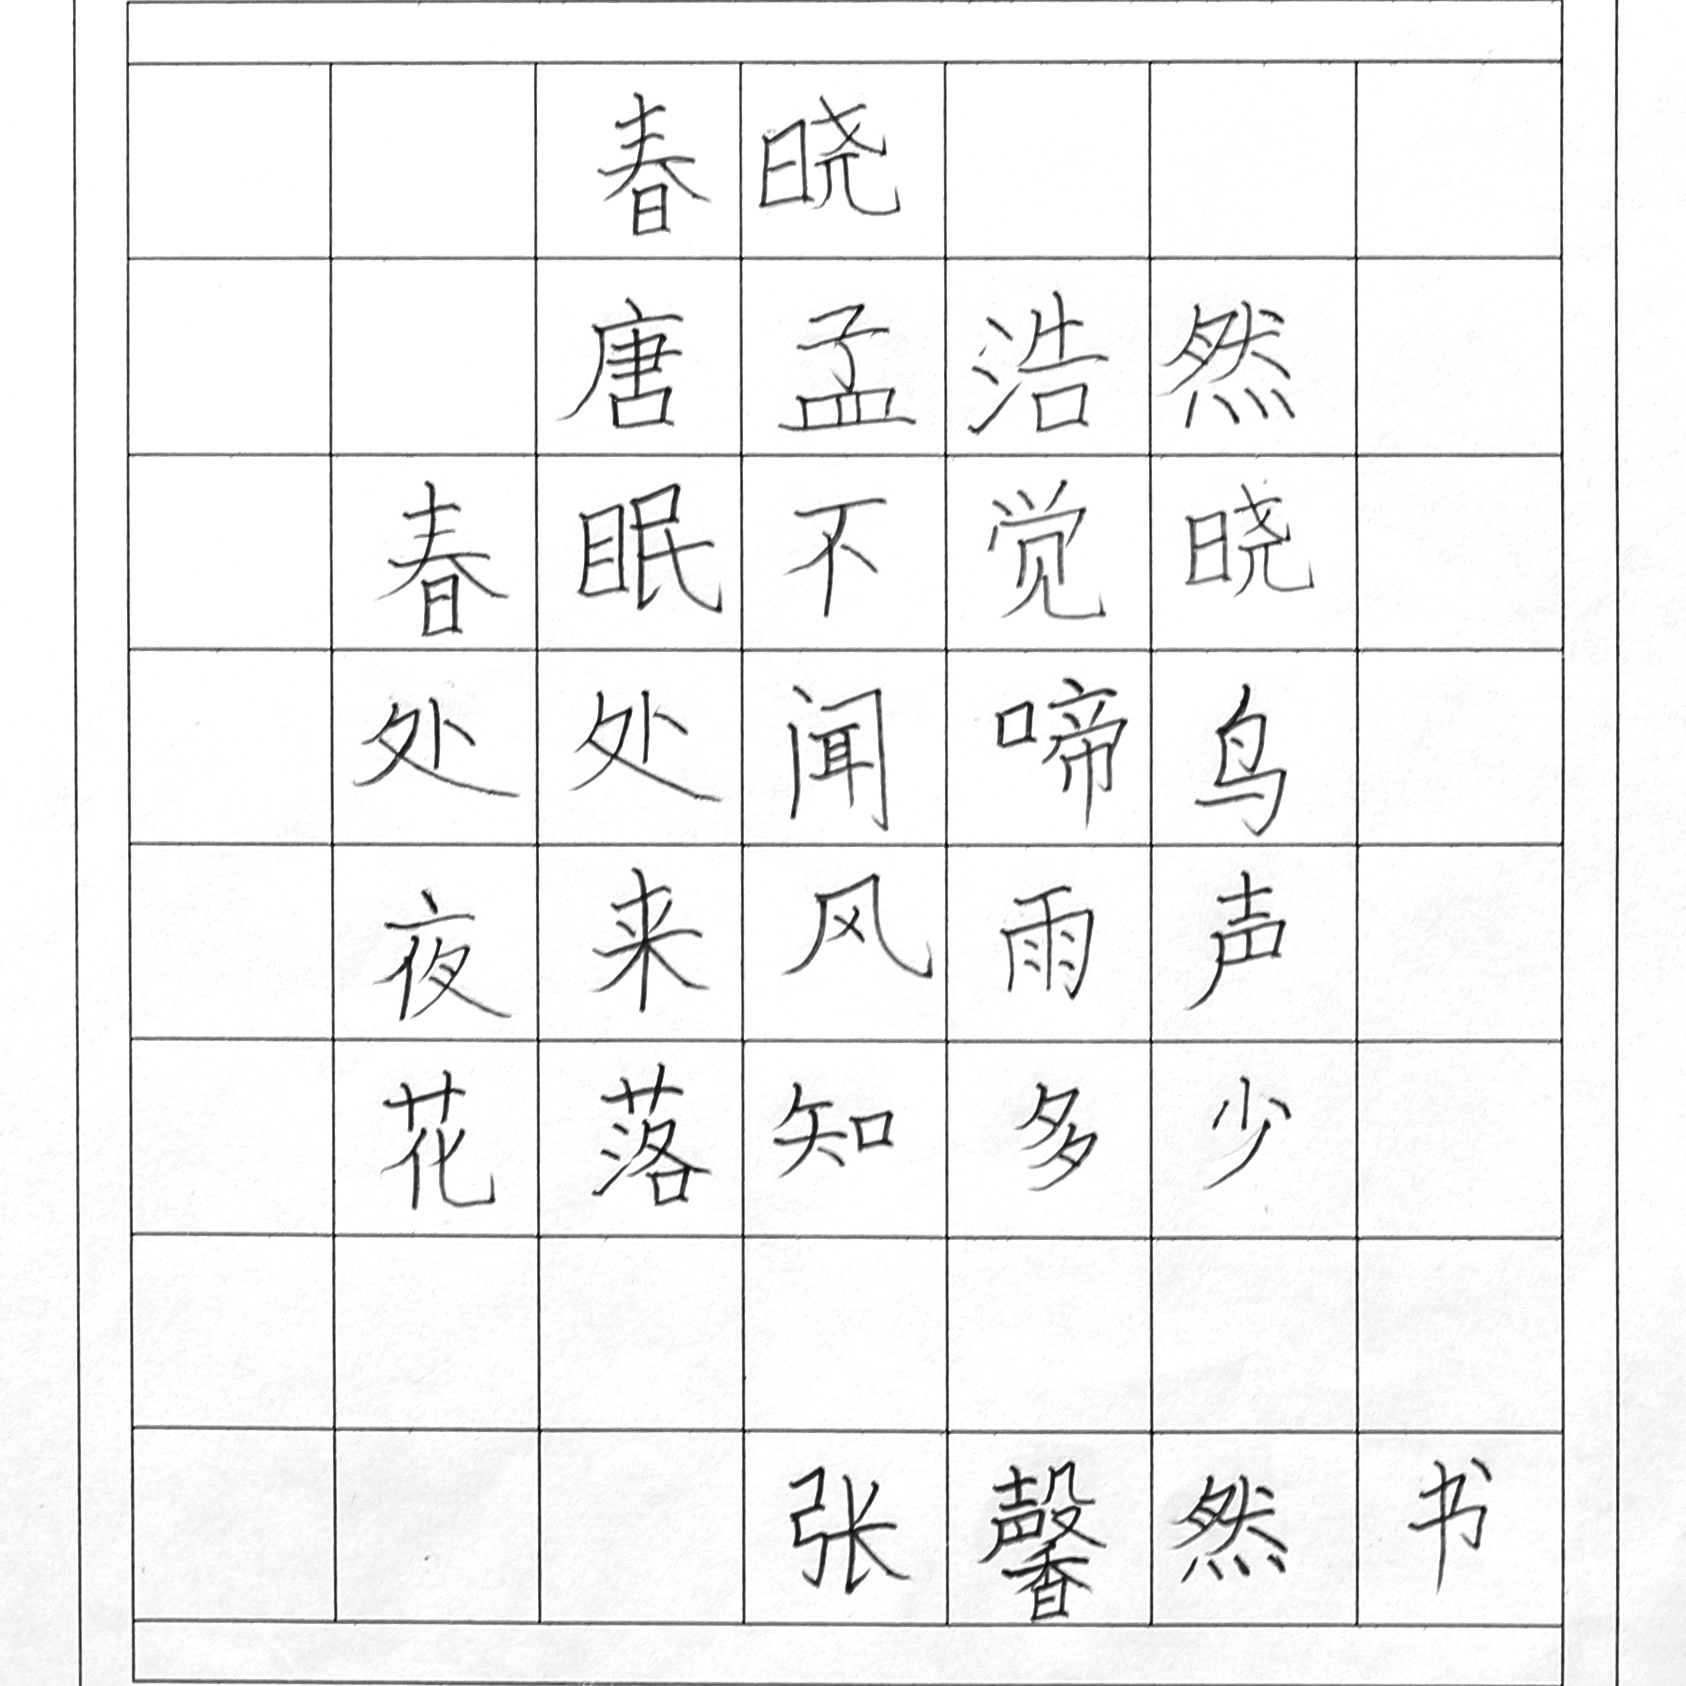 春晓
唐孟浩然
春眠不觉晓
处处闻啼鸟
夜来风雨声
花落知多少
张馨然书